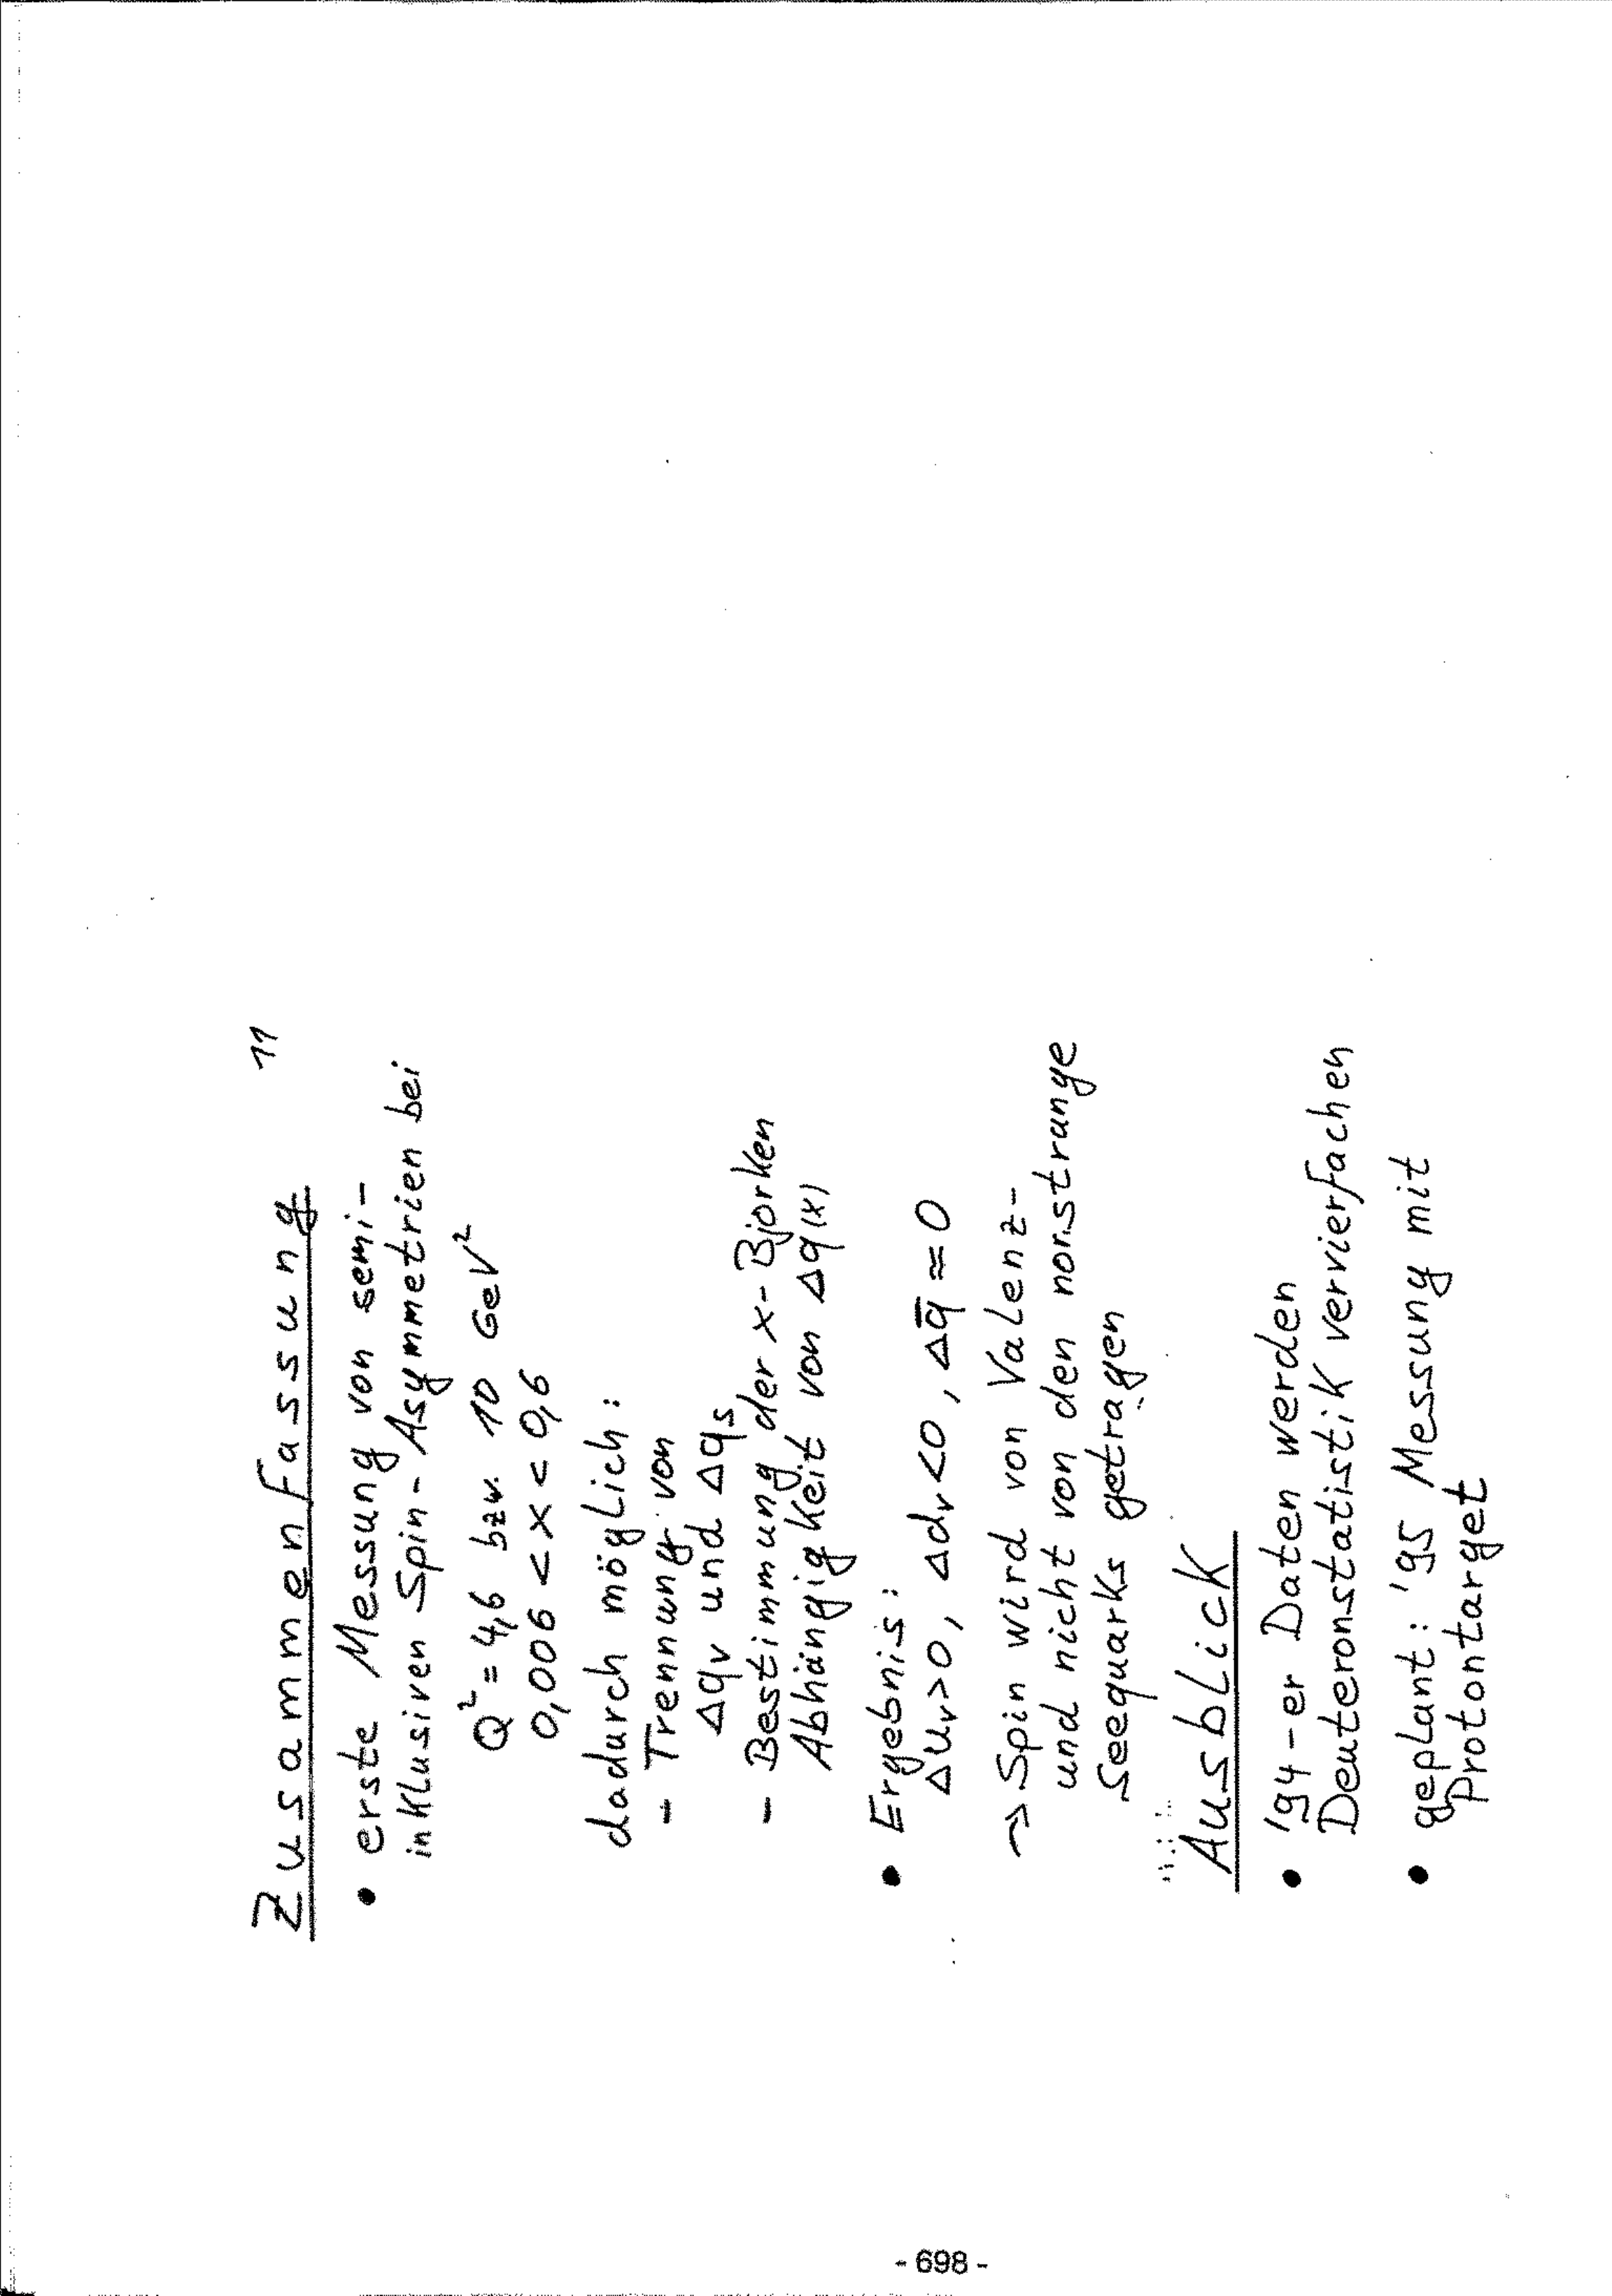 Zusammenfassung 11
• erste Messung von semi-
inklusiven Spin-Asymmetrien bei
Q² = 4,6 bzw. 10 GeV²
0,006 < x < 0,6
dadurch möglich:
- Trennung von
Δqv und Δqs
- Bestimmung der x-Bjorken
Abhängigkeit von Δq(x)
• Ergebnis:
Δuv>0, Δdv<0, Δq̅≈0
→ Spin wird von Valenz-
und nicht von den nonstrange
Seequarks getragen
Ausblick
• '94-er Daten werden
Deuteronstatistik vervierfachen
• geplant: '95 Messung mit
Protontarget
- 698 -